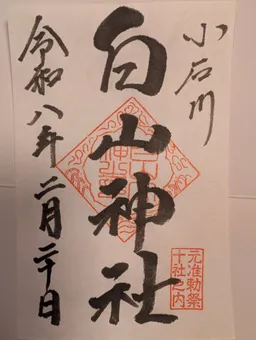 小石川
白山神社
元准勅祭
十社之内
令和八年二月二十日